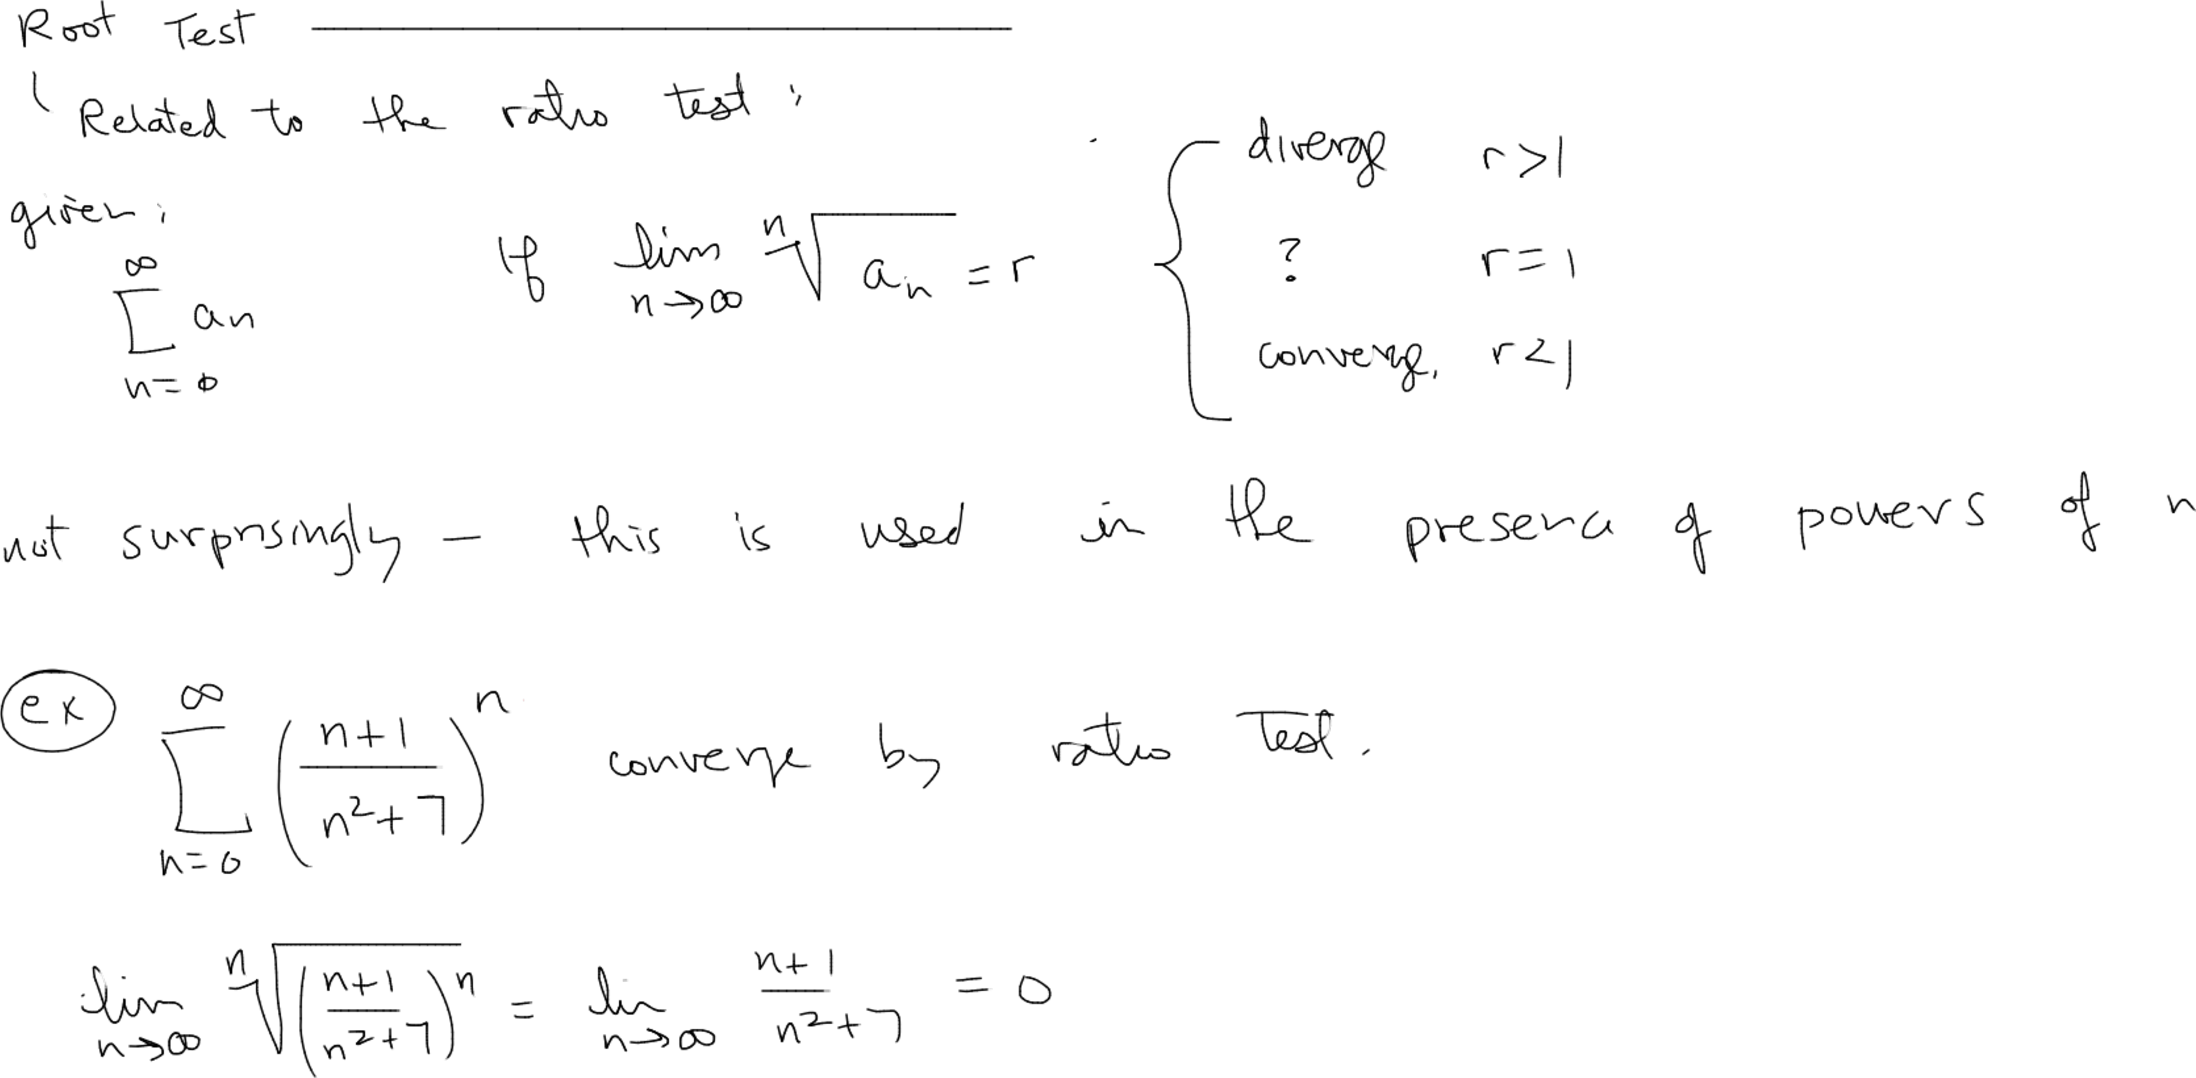 Root Test
Related to the ratio test;
given;
∞
Σ an
n=0
If lim n→∞ ⁿ√an = r
diverge r>1
? r=1
converge, r<1
not surprisingly – this is used in the presence of powers of n
ex ∞ Σ n=0 ((n+1)/(n²+7))ⁿ converge by ratio Test.
lim n→∞ ⁿ√((n+1)/(n²+7))ⁿ = lim n→∞ (n+1)/(n²+7) = 0